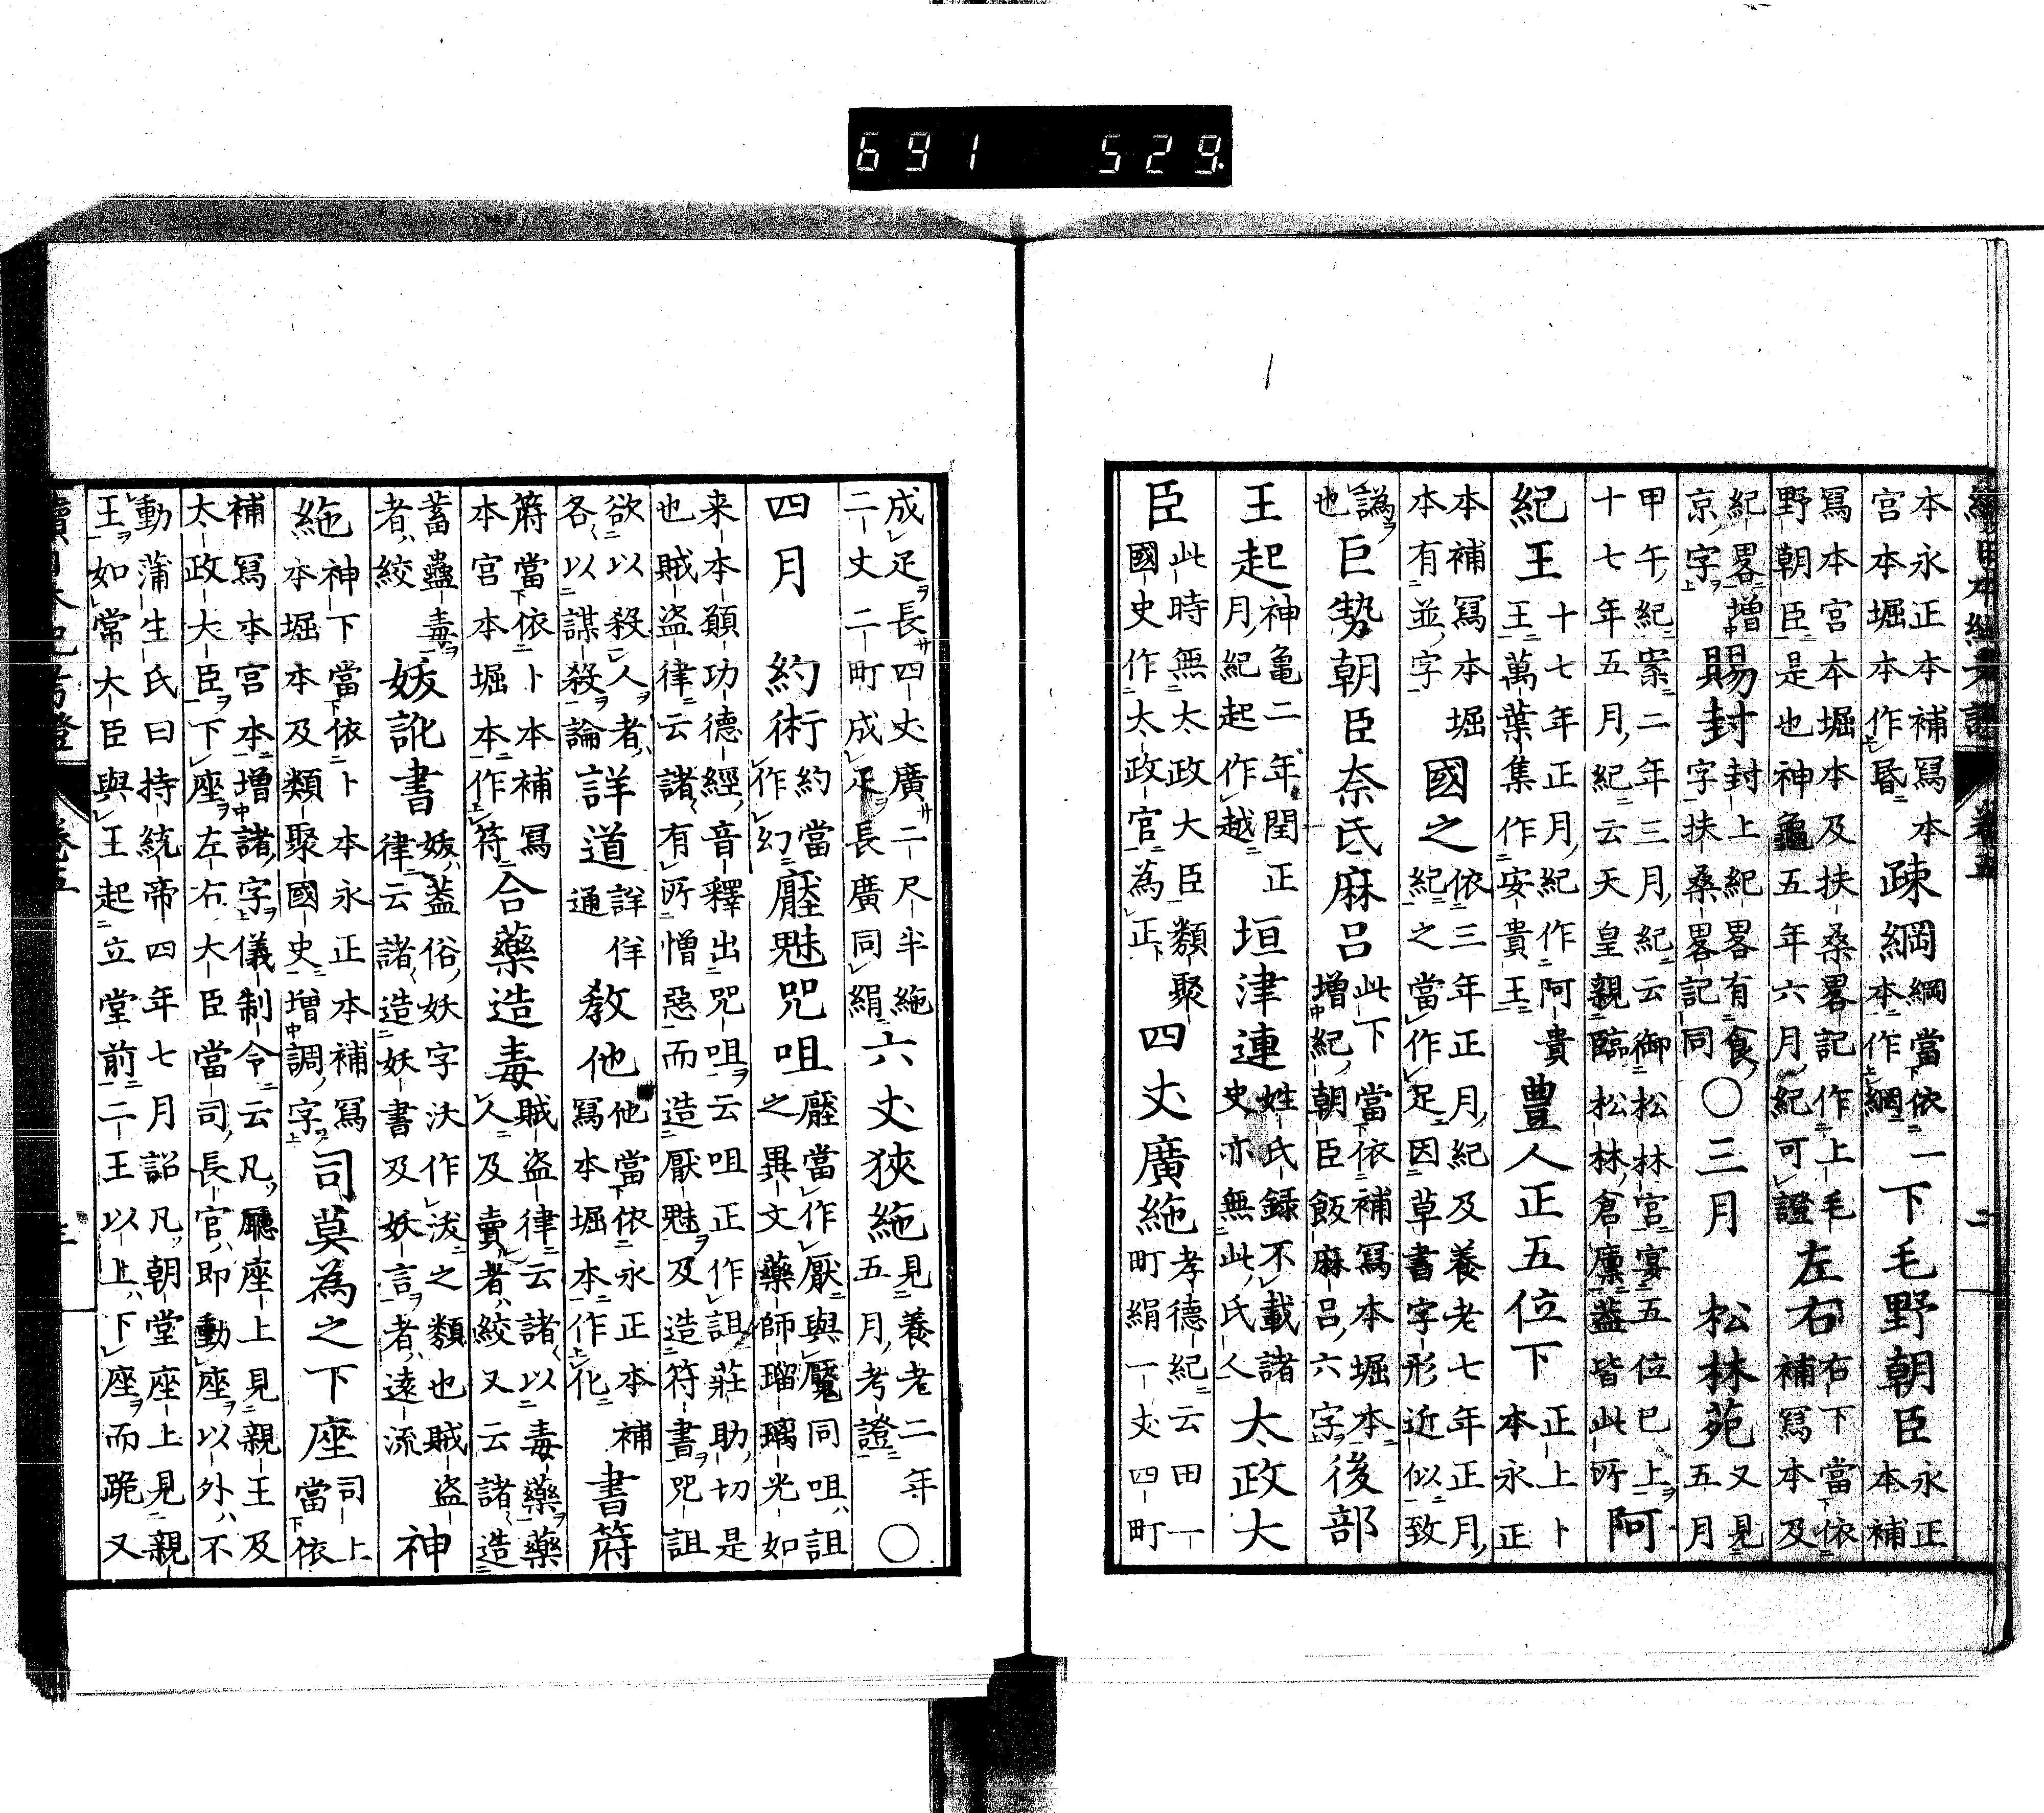 691 529.
本永正本補寫本
宮本堀本作昬
疎綱
綱當依
本作綱
一下毛野朝臣
永正
本補
寫本宮本堀本及扶桑畧記作上毛
野朝臣是也神龜五年六月紀可證
左右
右下當依
補寫本及
紀畧増
京字
賜封
封上紀畧有食
字扶桑畧記同
〇三月 松林苑
又見
五月
甲午紀案二年三月紀云御松林宮宴五位巳上
十七年五月紀云天皇親臨松林倉廩蓋皆此所
阿
紀王
十七年正月紀作阿貴
王萬葉集作安貴王
豐人正五位下
正上卜
本永正
本補寫本堀
本有並字
國之
依三年正月紀及養老七年正月
紀之當作足因草書字形近似致
譌
也
巨勢朝臣奈氐麻呂
此下當依補寫本堀本
増紀朝臣飯麻呂六字
後部
王起
神亀二年閏正
月紀起作越
垣津連
姓氏録不載諸
史亦無此氏人
太政大
臣
此時無太政大臣類聚
國史作太政官為正
四丈廣絁
孝德紀云田一
町絹一丈四町
成足長四丈廣二尺半絁
二丈二町成足長廣同絹
六丈狹絁
見養老二年
五月考證
〇
四月 約術
約當
作幻
壓魅咒咀
壓當作厭與魘同咀詛
之異文藥師瑠璃光如
来本願功德經音釋出咒咀云咀正作詛莊助切是
也賊盗律云諸有所憎惡而造厭魅及造符書咒詛
欲以殺人者
各以謀殺論
詳道
詳佯
通
教他
他當依永正本補
寫本堀本作化
書䈃
䈃當依卜本補寫
本宮本堀本作符
合藥造毒
賊盗律云諸以毒藥藥
人及賣者絞又云諸造
蓄蠱毒
者絞
妭訛書
妭蓋俗妖字決作泼之類也賊盗
律云諸造妖書及妖言者遠流
神
絁
神下當依卜本永正本補寫
本堀本及類聚國史増調字
司莫為之下座
司上
當依
補寫本宮本増諸字儀制令云凡廳座上見親王及
太政大臣下座左右大臣當司長官即動座以外不
動蒲生氏曰持統帝四年七月詔凡朝堂座上見親
王如常大臣與王起立堂前二王以上下座而跪又